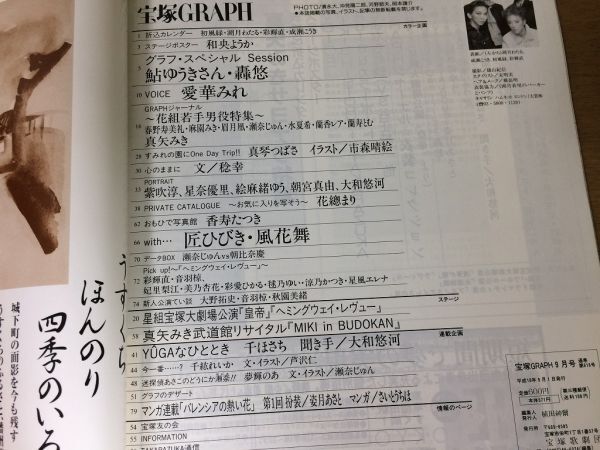 宝塚GRAPH
PHOTO/清永大、沖見庸二郎、河野裕夫、岡本謙介
カラー企画
1 折込カレンダー 初風緑・湖月わたる・彩輝直・成瀬こうき
3 ステージポスター 和央ようか
グラフ・スペシャル Session
5 鮎ゆうきさん・轟悠
10 VOICE 愛華みれ
GRAPHジャーナル
〜花組若手男役特集〜
春野寿美礼・麻園みき・眉月凰・瀬奈じゅん・水夏希・蘭香レア・蘭寿とむ
真矢みき
28 すみれの園にOne Day Trip!! 真琴つばさ イラスト/市森晴絵
30 心のままに 文/稔幸
PORTRAIT
33 紫吹淳、星奈優里、絵麻緒ゆう、朝宮真由、大和悠河
38 PRIVATE CATALOGUE 〜お気に入りを写そう〜 花總まり
62 おもひで写真館 香寿たつき
66 with… 匠ひびき・風花舞
70 データBOX 瀬奈じゅんvs朝比奈慶
Pick up!〜「ヘミングウェイ・レヴュー」〜
72 彩輝直・音羽椋、
妃里梨江・美乃杏花・彩愛ひかる・毬乃ゆい・涼乃かつき・星風エレナ
74 新人公演てい談 大野拓史・音羽椋・秋園美緒
ステージ
20 星組宝塚大劇場公演『皇帝』『ヘミングウェイ・レヴュー』
58 真矢みき武道館リサイタル『MIKI in BUDOKAN』
連載企画
41 YŪGAなひととき 千ほさち 聞き手/大和悠河
44 今一番……? 千紘れいか 文・イラスト/芦沢仁
48 迷探偵あさこのどうにか溯茶!! 夢輝のあ 文・イラスト/瀬奈じゅん
51 グラフのデザート
79 マンガ連載「バレンシアの熱い花」 第1回 扮装/姿月あさと マンガ/さいとうちほ
情報のページ
54 宝塚友の会
55 INFORMATION
TAKARAZUKA通信
うすくち
ほんのり
四季のいろ
城下町の面影を今も残す
宝塚GRAPH 9月号
平成10年9月1日発行
定価600円
本体571円
編集人 植田紳爾
発行所
宝塚歌劇団